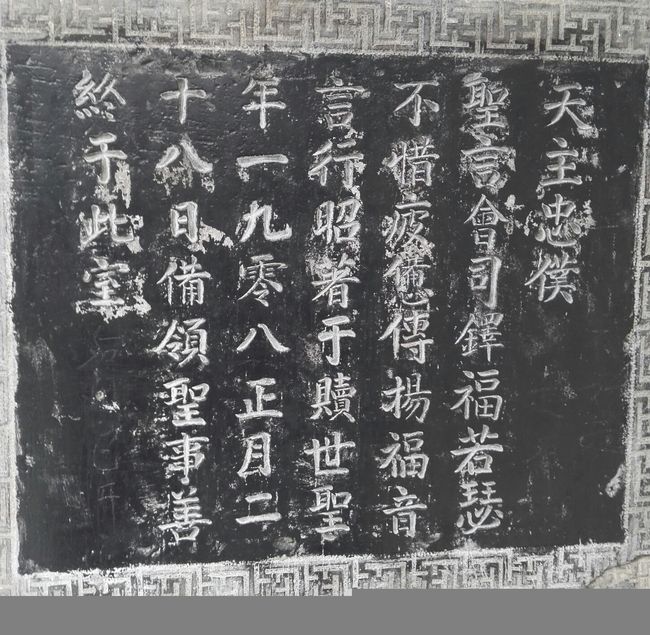 天主忠僕
聖言會司鐸福若瑟
不惜疲憊傳揚福音
言行昭著于贖世聖
年一九零八正月二
十八日備領聖事善
終于此室